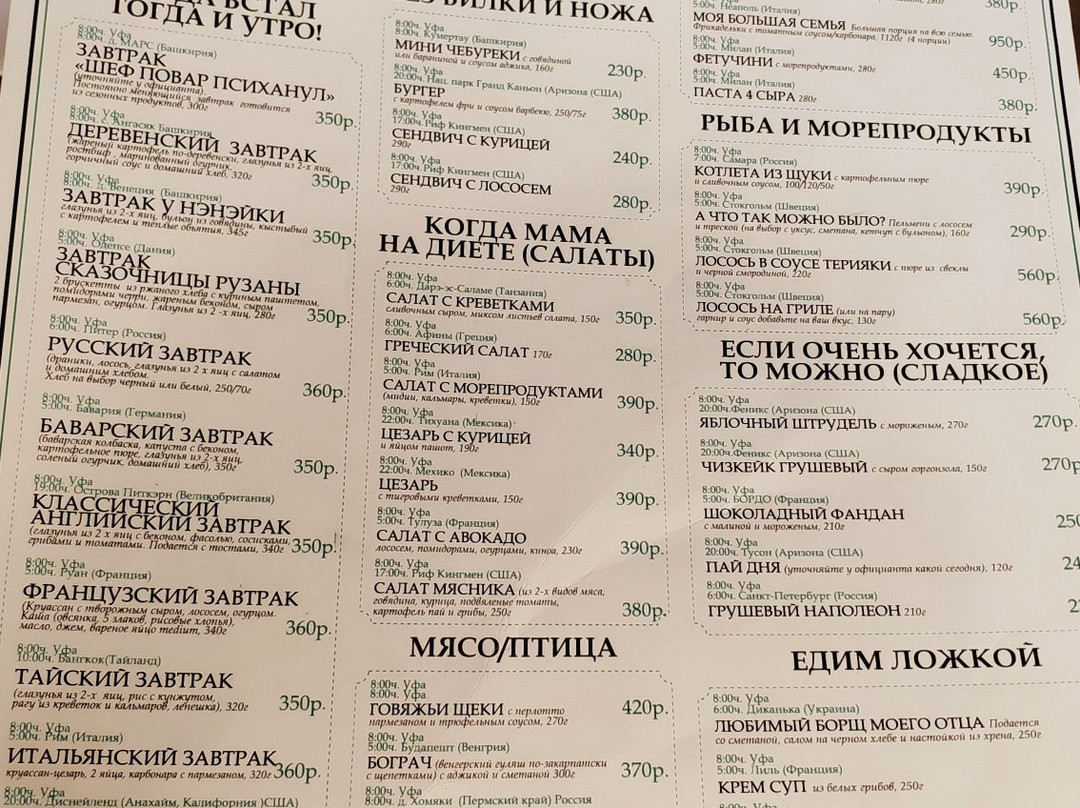 ДА ВСТАЛ
ТОГДА И УТРО!
8:00ч. Уфа
8:00ч. д. МАРС (Башкирия)
ЗАВТРАК
«ШЕФ ПОВАР ПСИХАНУЛ»
(уточняйте у официанта).
Постоянно меняющийся завтрак готовится
из сезонных продуктов, 300г
350р.
8:00ч. Уфа
8:00ч. с. Ангасяк Башкирия
ДЕРЕВЕНСКИЙ ЗАВТРАК
(жареный картофель по-деревенски, глазунья из 2-х яиц,
ростбиф, маринованный огурчик,
горчичный соус и домашний хлеб, 320г
350р.
8:00ч. Уфа
8:00ч. д. Венеция (Башкирия)
ЗАВТРАК У НЭНЭЙКИ
глазунья из 2-х яиц, бульон из говядины, кыстыбый
с картофелем и тёплые объятия, 345г
350р.
8:00ч. Уфа
5:00ч. Оденсе (Дания)
ЗАВТРАК
СКАЗОЧНИЦЫ РУЗАНЫ
2 брускетты из ржаного хлеба с куриным паштетом,
помидорами черри, жареным беконом, сыром
пармезан, огурцом. Глазунья из 2 -х яиц, 280г
350р.
8:00ч. Уфа
6:00ч. Питер (Россия)
РУССКИЙ ЗАВТРАК
(драники, лосось, глазунья из 2 х яиц с салатом
и домашним хлебом.
Хлеб на выбор черный или белый, 250/70г
360р.
8:00ч. Уфа
5:00ч. Бавария (Германия)
БАВАРСКИЙ ЗАВТРАК
(баварская колбаска, капуста с беконом,
картофельное пюре, глазунья из 2-х яиц,
соленый огурчик, домашний хлеб), 350г
350р.
8:00ч. Уфа
19:00ч. Острова Питкэрн (Великобритания)
КЛАССИЧЕСКИЙ
АНГЛИЙСКИЙ ЗАВТРАК
(глазунья из 2 х яиц с беконом, фасолью, сосисками,
грибами и томатами. Подается с тостами, 340г
350р.
8:00ч. Уфа
5:00ч. Руан (Франция)
ФРАНЦУЗСКИЙ ЗАВТРАК
(Круассан с творожным сыром, лососем, огурцом.
Каша (овсянка, 5 злаков, рисовые хлопья),
масло, джем, вареное яйцо medium, 340г
360р.
8:00ч. Уфа
10:00ч. Бангкок(Тайланд)
ТАЙСКИЙ ЗАВТРАК
(глазунья из 2-х яиц, рис с кунжутом,
рагу из креветок и кальмаров, лепешка), 320г
350р.
8:00ч. Уфа
5:00ч. Рим (Италия)
ИТАЛЬЯНСКИЙ ЗАВТРАК
круассан-цезарь, 2 яйца, карбонара с пармезаном, 320г
360р.
8:00ч. Уфа
20:00ч. Диснейленд (Анахайм, Калифорния )США)
ВИЛКИ И НОЖА
8:00ч. Уфа
8:00ч. Кумертау (Башкирия)
МИНИ ЧЕБУРЕКИ с говядиной
или бараниной и соусом аджика, 160г
230р.
8:00ч. Уфа
20:00ч. Нац. парк Гранд Каньон (Аризона (США)
БУРГЕР
с картофелем фри и соусом барбекю, 250/75г
380р.
8:00ч. Уфа
17:00ч. Риф Кингмен (США)
СЕНДВИЧ С КУРИЦЕЙ
290г
240р.
8:00ч. Уфа
17:00ч. Риф Кингмен (США)
СЕНДВИЧ С ЛОСОСЕМ
290г
280р.
КОГДА МАМА
НА ДИЕТЕ (САЛАТЫ)
8:00ч. Уфа
6:00ч. Дарэ-эс-Саламе (Танзания)
САЛАТ С КРЕВЕТКАМИ
сливочным сыром, миксом листьев салата, 150г
350р.
8:00ч. Уфа
6:00ч. Афины (Греция)
ГРЕЧЕСКИЙ САЛАТ 170г
280р.
8:00ч. Уфа
5:00ч. Рим (Италия)
САЛАТ С МОРЕПРОДУКТАМИ
(мидии, кальмары, креветки), 150г
390р.
8:00ч. Уфа
22:00ч. Тихуана (Мексика)
ЦЕЗАРЬ С КУРИЦЕЙ
и яйцом пашот, 190г
340р.
8:00ч. Уфа
22:00ч. Мехико (Мексика)
ЦЕЗАРЬ
с тигровыми креветками, 150г
390р.
8:00ч. Уфа
5:00ч. Тулуза (Франция)
САЛАТ С АВОКАДО
лососем, помидорами, огурцами, киноа, 230г
390р.
8:00ч. Уфа
17:00ч. Риф Кингмен (США)
САЛАТ МЯСНИКА (из 2-х видов мяса,
говядина, курица, подвяленые томаты,
картофель пай и грибы, 250г
380р.
МЯСО/ПТИЦА
8:00ч. Уфа
8:00ч. Уфа
ГОВЯЖЬИ ЩЕКИ с перлотто
пармезаном и трюфельным соусом, 270г
420р.
8:00ч. Уфа
5:00ч. Будапешт (Венгрия)
БОГРАЧ (венгерский гуляш по-закарпатски
с щепетками) с аджикой и сметаной 300г
370р.
8:00ч. Уфа
8:00ч. д. Хомяки (Пермский край) Россия
280г
380р.
5:00ч. Неаполь (Италия)
МОЯ БОЛЬШАЯ СЕМЬЯ Большая порция на всю семью.
Фрикадельки с томатным соусом/карбонара, 1120г (4 порции)
950р.
8:00ч. Уфа
5:00ч. Милан (Италия)
ФЕТУЧИНИ с морепродуктами, 280г
450р.
8:00ч. Уфа
5:00ч. Милан (Италия)
ПАСТА 4 СЫРА 280г
380р.
РЫБА И МОРЕПРОДУКТЫ
8:00ч. Уфа
7:00ч. Самара (Россия)
КОТЛЕТА ИЗ ЩУКИ с картофельным пюре
и сливочным соусом, 100/120/50г
390р.
8:00ч. Уфа
5:00ч. Стокгольм (Швеция)
А ЧТО ТАК МОЖНО БЫЛО? Пельмени с лососем
и треской (на выбор с уксус, сметана, кетчуп с бульоном), 160г
290р.
8:00ч. Уфа
5:00ч. Стокгольм (Швеция)
ЛОСОСЬ В СОУСЕ ТЕРИЯКИ с пюре из свеклы
и черной смородиной, 220г
560р.
8:00ч. Уфа
5:00ч. Стокгольм (Швеция)
ЛОСОСЬ НА ГРИЛЕ (или на пару)
гарнир и соус добавьте на ваш вкус, 130г
560р.
ЕСЛИ ОЧЕНЬ ХОЧЕТСЯ,
ТО МОЖНО (СЛАДКОЕ)
8:00ч. Уфа
20:00ч.Феникс (Аризона (США)
ЯБЛОЧНЫЙ ШТРУДЕЛЬ с мороженым, 270г
270р.
8:00ч. Уфа
20:00ч.Феникс (Аризона (США)
ЧИЗКЕЙК ГРУШЕВЫЙ с сыром горгонзола, 150г
270р
8:00ч. Уфа
5:00ч. БОРДО (Франция)
ШОКОЛАДНЫЙ ФАНДАН
с малиной и мороженым, 210г
250
8:00ч. Уфа
20:00ч. Тусон (Аризона (США)
ПАЙ ДНЯ (уточняйте у официанта какой сегодня), 120г
24
8:00ч. Уфа
6:00ч. Санкт-Петербург (Россия)
ГРУШЕВЫЙ НАПОЛЕОН 210г
ЕДИМ ЛОЖКОЙ
8:00ч. Уфа
6:00ч. Диканька (Украина)
ЛЮБИМЫЙ БОРЩ МОЕГО ОТЦА Подается
со сметаной, салом на черном хлебе и настойкой из хрена, 250г
8:00ч. Уфа
5:00ч. Лиль (Франция)
КРЕМ СУП из белых грибов, 250г
8:00ч. Уфа